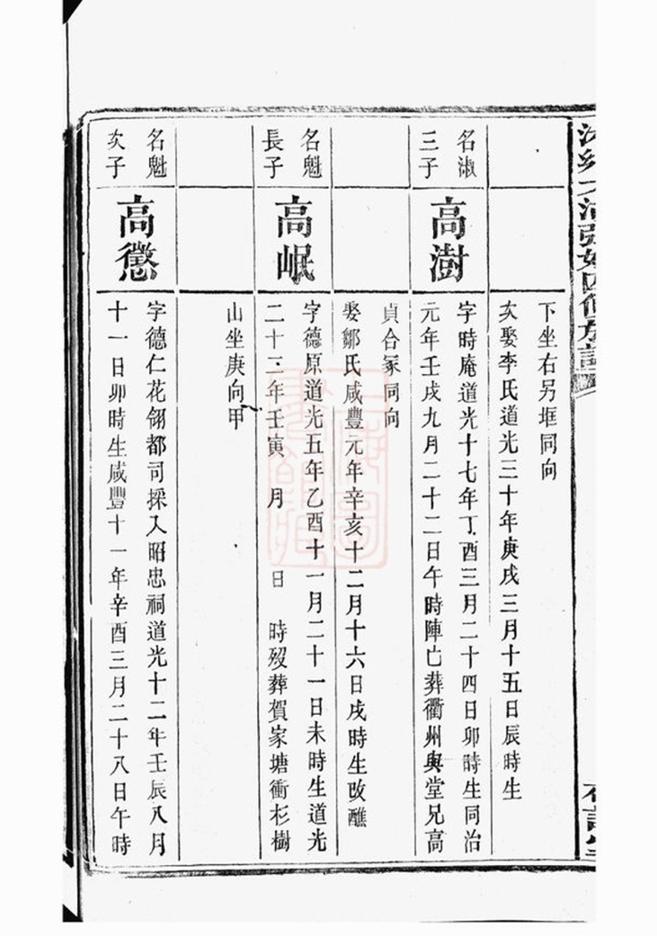 下坐右另堀同向
次娶李氏道光三十年庚戌三月十五日辰時生
名淑
三子
高澍
字時庵道光十七年丁酉三月二十四日卯時生同治
元年壬戌九月二十二日午時陣亡葬衢州與堂兄高
貞合冢同向
娶鄒氏咸豐元年辛亥十二月十六日戌時生改醮
名魁
長子
高岷
字德原道光五年乙酉十一月二十一日未時生道光
二十三年壬寅 月 日 時歿葬賀家塘衝杉樹
山坐庚向甲
名魁
次子
高懲
字德仁花翎都司採入昭忠祠道光十二年壬辰八月
十一日卯時生咸豐十一年辛酉三月二十八日午時